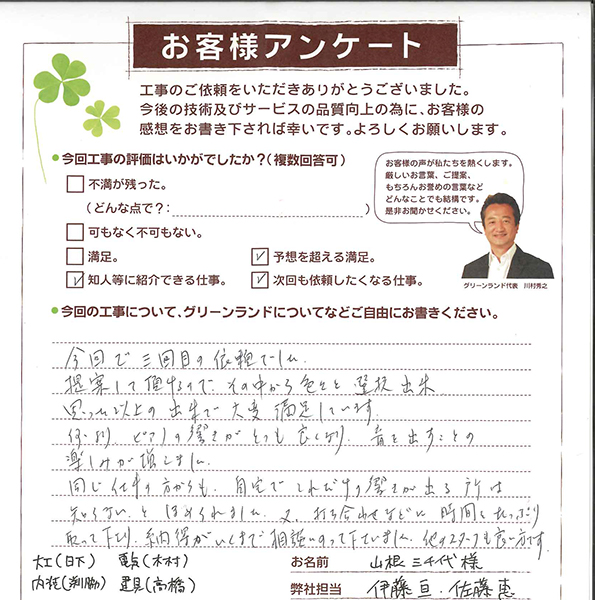 お客様アンケート
工事のご依頼をいただきありがとうございました。
今後の技術及びサービスの品質向上の為に、お客様の
感想をお書き下されば幸いです。よろしくお願いします。
●今回工事の評価はいかがでしたか?(複数回答可)
不満が残った。
(どんな点で?: )
可もなく不可もない。
満足。
✓予想を超える満足。
✓知人等に紹介できる仕事。
✓次回も依頼したくなる仕事。
お客様の声が私たちを熱くします。
厳しいお言葉、ご提案、
もちろんお誉めの言葉など
どんなことでも結構です。
是非お聞かせください。
グリーンランド代表 川村秀之
●今回の工事について、グリーンランドについてなどご自由にお書きください。
今回で三回目の依頼でした。
提案して頂けるので、その中から色々と選択出来
思った以上の出来で大変満足しています。
何より、ピアノの響きがとても良くなり、音を出すことの
楽しみが増しました。
同じ仕事の方からも、自宅でこれだけの響きが出る所は
知らないとほめられました。又、打ち合わせなどに時間をたっぷり
取って下さり、納得がいくまで相談にのって下さいました。他のスタッフも良い方です。
大工(日下) 電気(木村)
内装(渕脇) 建具(高橋)
お名前 山根三千代様
弊社担当 伊藤亘・佐藤恵